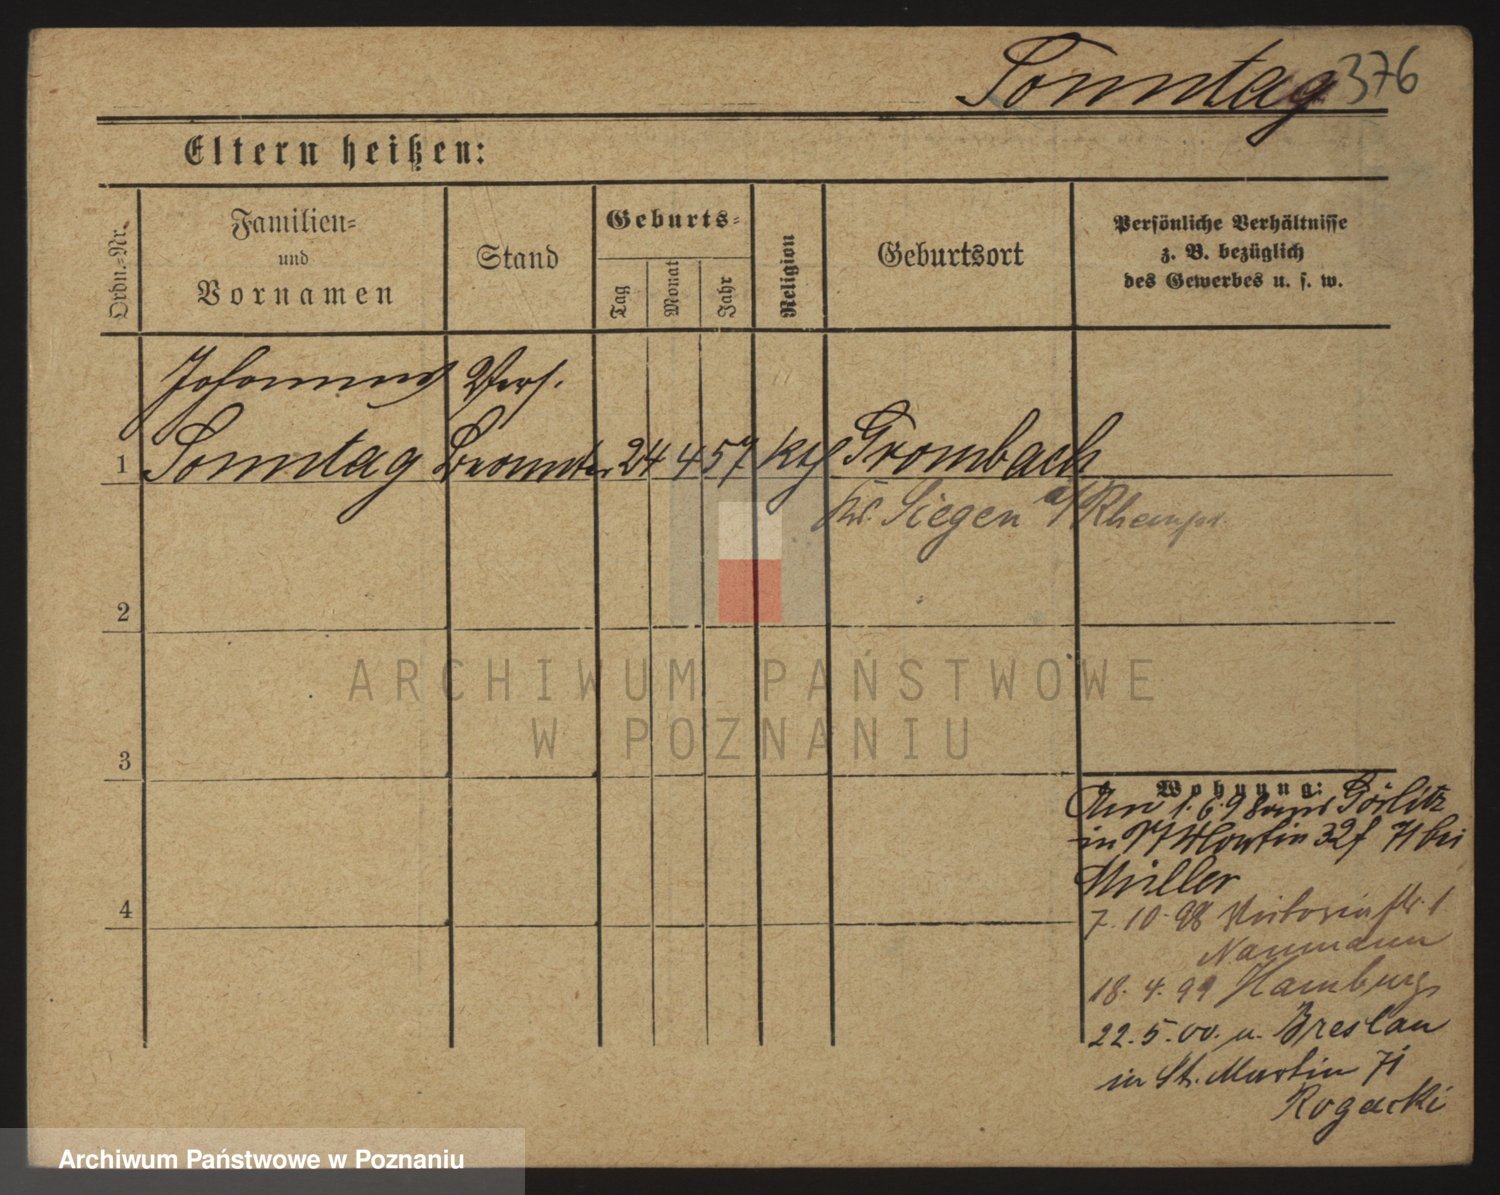 Sonntag 376
Eltern heißen:
Ordn.-Nr.
Familien-
und
Vornamen
Stand
Geburts-
Tag
Monat
Jahr
Religion
Geburtsort
Persönliche Verhältnisse
z. B. bezüglich
des Gewerbes u. s. w.
Johannes Vers.
1 Sonntag Beamter 24 4 57 kth Trombach
Kr. Siegen a/
2
3
4
Wohnung:
1. 6. 98 Görlitz
in St Martin 71 bei
Müller
7. 10. 98 Viktoriastr. 1
Naumann
18. 4. 99 Hamburg
22. 5. 00. v. Breslau
in St. Martin 71
Rogacki
ARCHIWUM PAŃSTWOWE
W POZNANIU
Archiwum Państwowe w Poznaniu